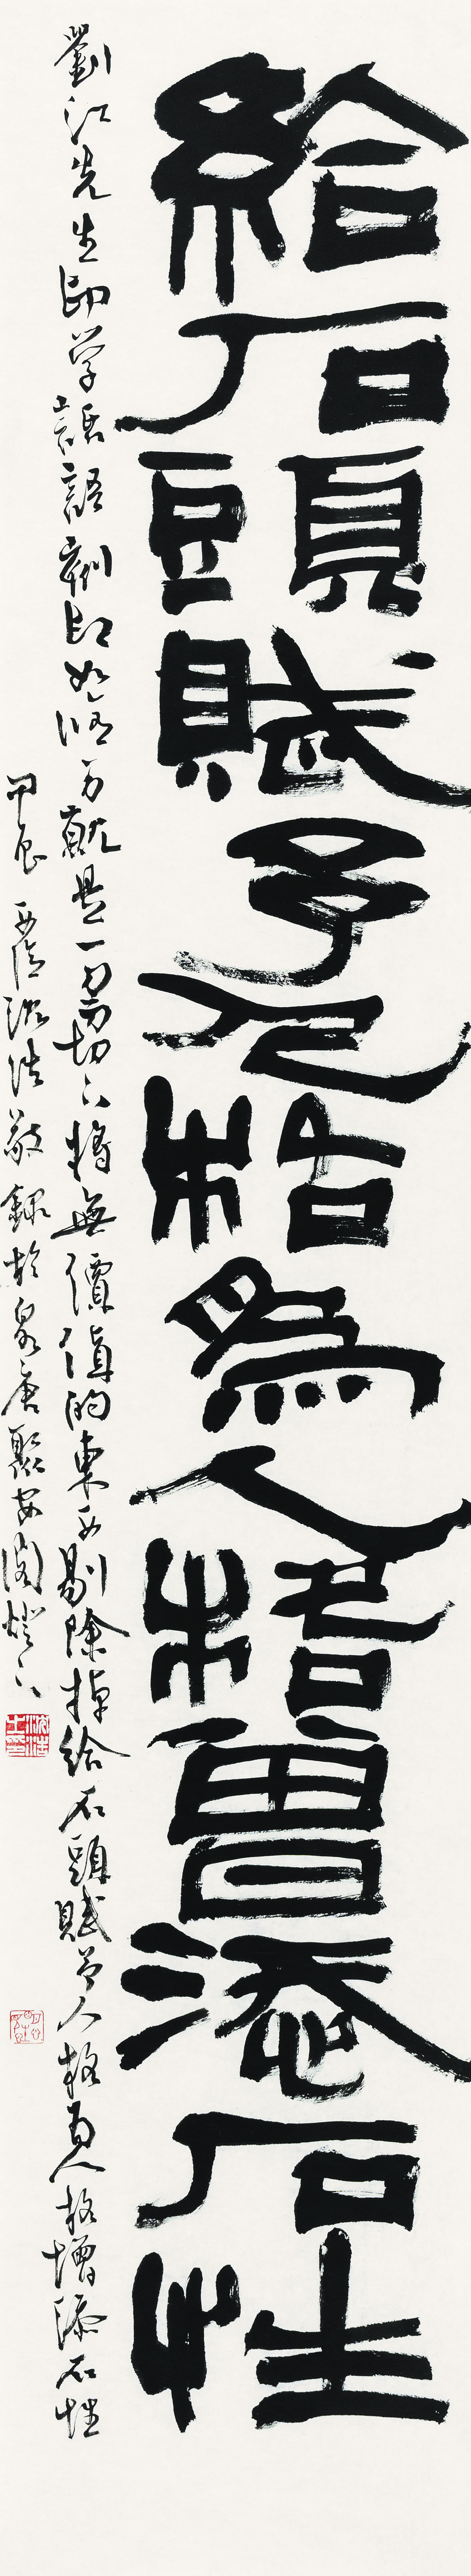 給石頭賦予人格為人格曾添石性
劉江先生印学話語刻印如修身就是一刀刀切下將無價值的東西剔除掉給石頭賦予人格為人格增添石性
甲辰西陵沈浩敬錄於泉唐聚安閣燈下